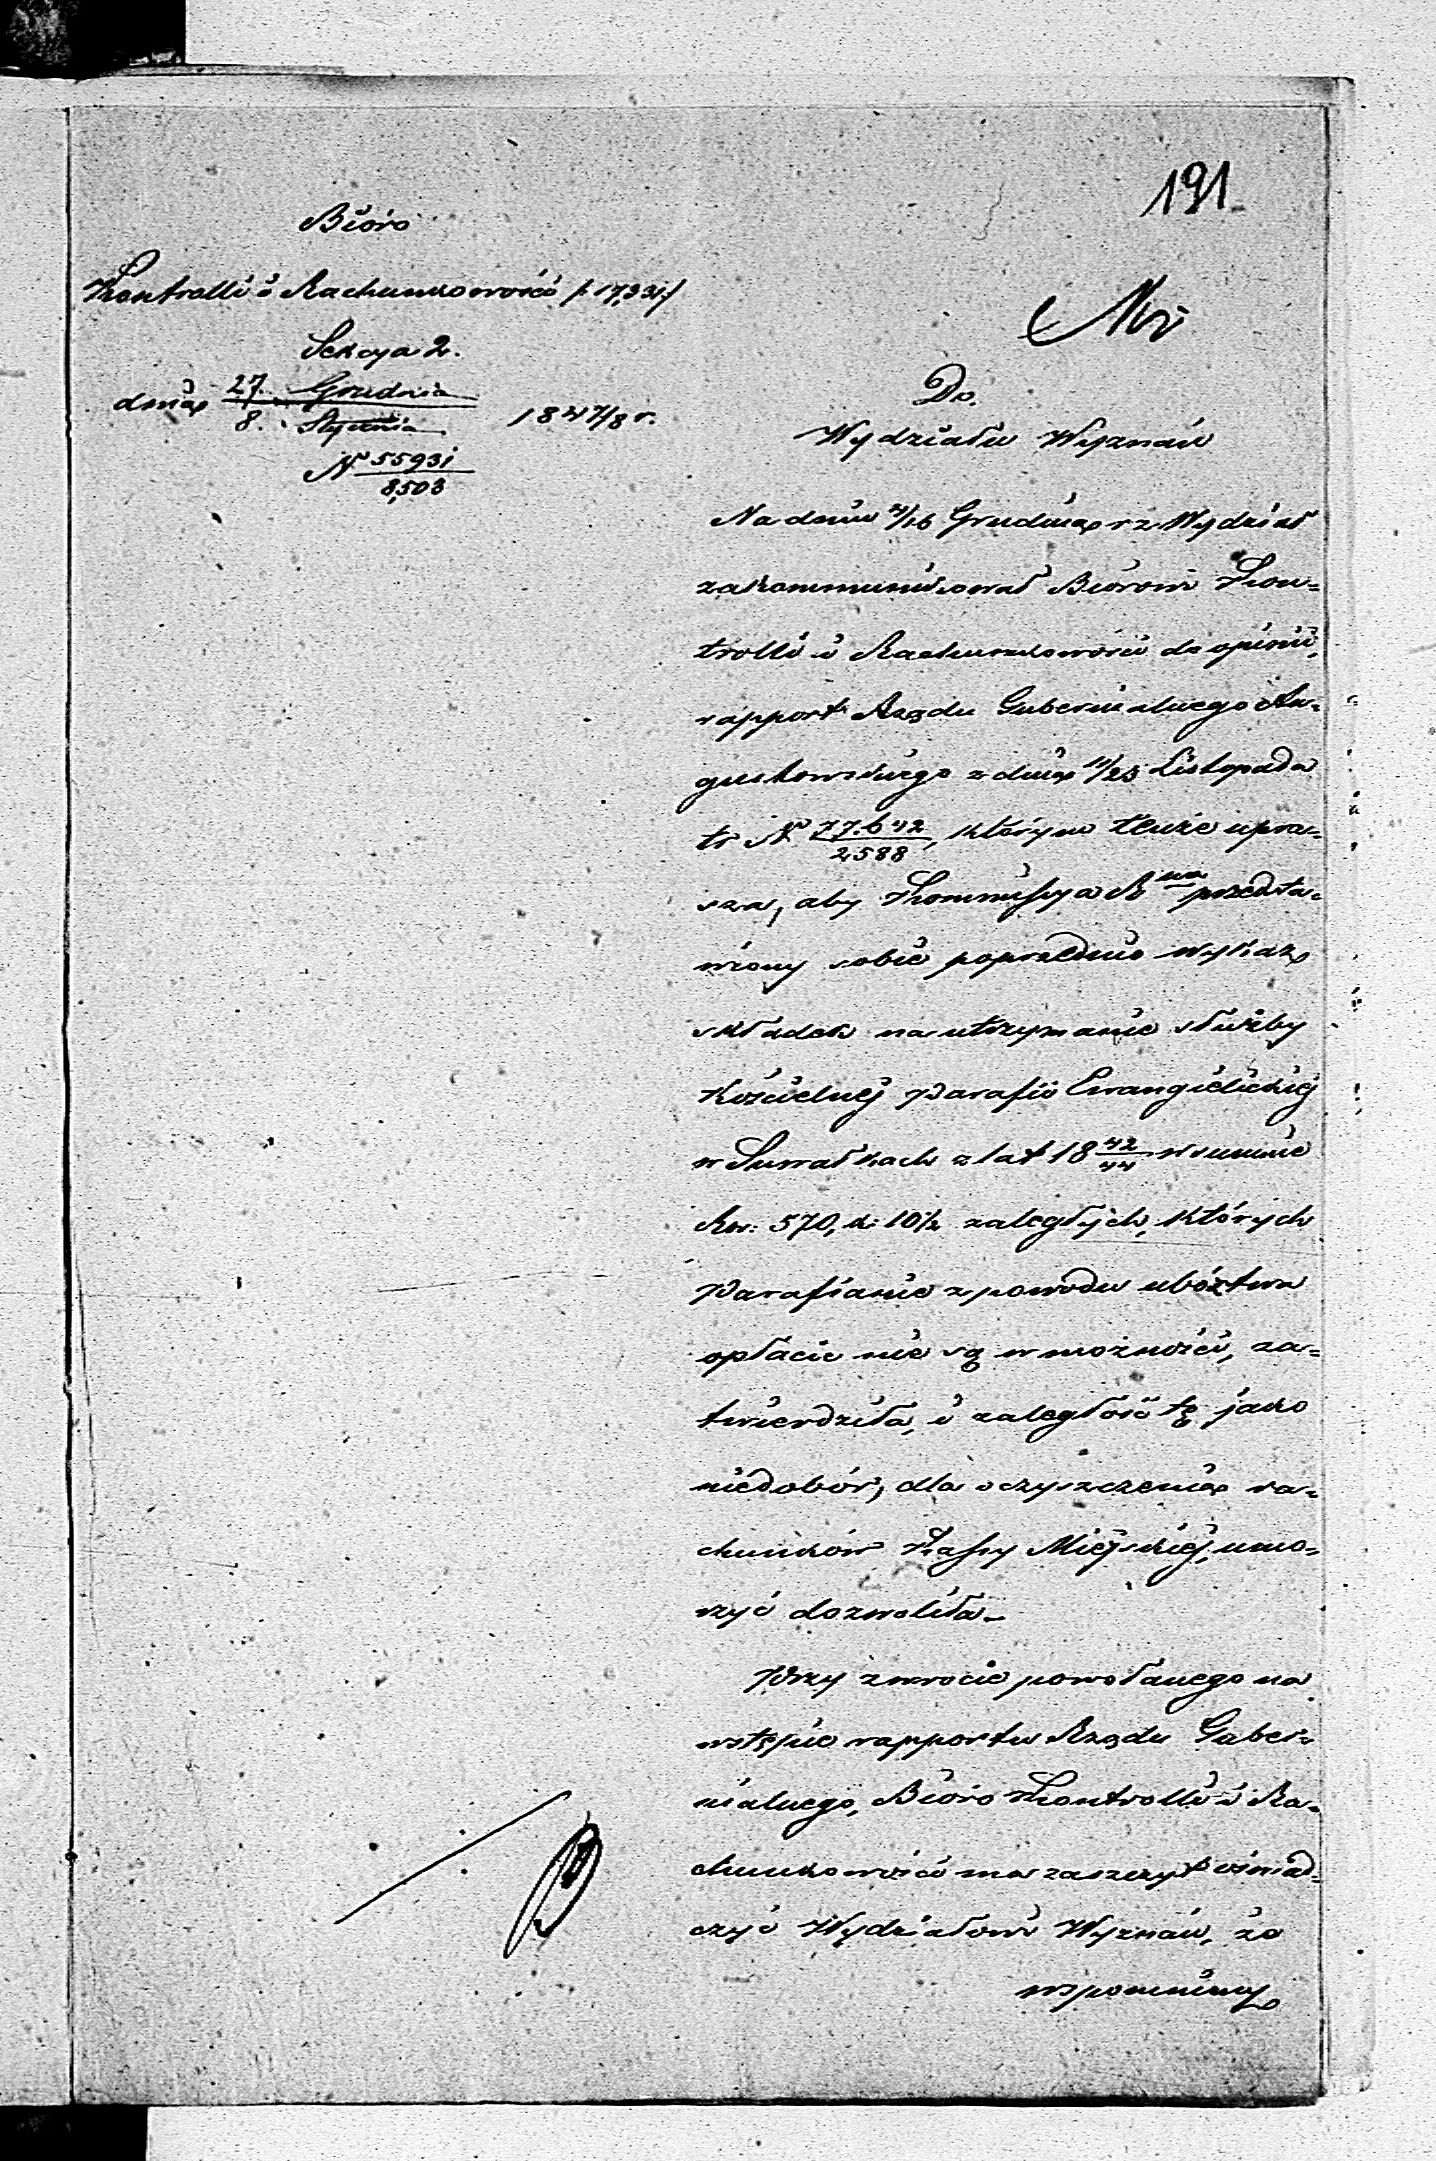 191
Bióro
Kontrolli i Rachunkowości /: 17,331 :/
Sekcya 2.
dnia 27. Grudnia / 8. Stycznia 1847/8 r.
N 55931 / 8,503
Do
Wydziału Wyznań
Na dniu 4/16 Grudnia r z Wydział
zakommunikował Biórowi Kon=
trolli i Rachunkowości do opinii,
rapport Rządu Gubernialnego Au=
gustowskiego z dnia 11/23 Listopada
tr N 77.642 / 2588, którym tenże upra=
sza, aby Kommissya R wa przedsta=
wiony sobie poprzednio wykaz
składek na utrzymanie służby
Kościelnej Parafii Ewangielickiej
w Suwałkach z lat 18 42/44 w summie
Rsr: 570, k: 10½ zaległych, których
Parafianie z powodu ubóztwa
opłacić nie są w możności, za=
twierdziła, i zaległość tę jako
niedobór, dla oczyszczenia ra=
chunków Kassy Miejskiej, umo=
rzyć dozwoliła.
Przy zwrocie powołanego na
wstępie rapportu Rządu Guber=
nialnego, Bióro Kontrolli i Ra=
chunkowości ma zaszczyt oświad=
czyć Wydziałowi Wyznań, że
wspomniony